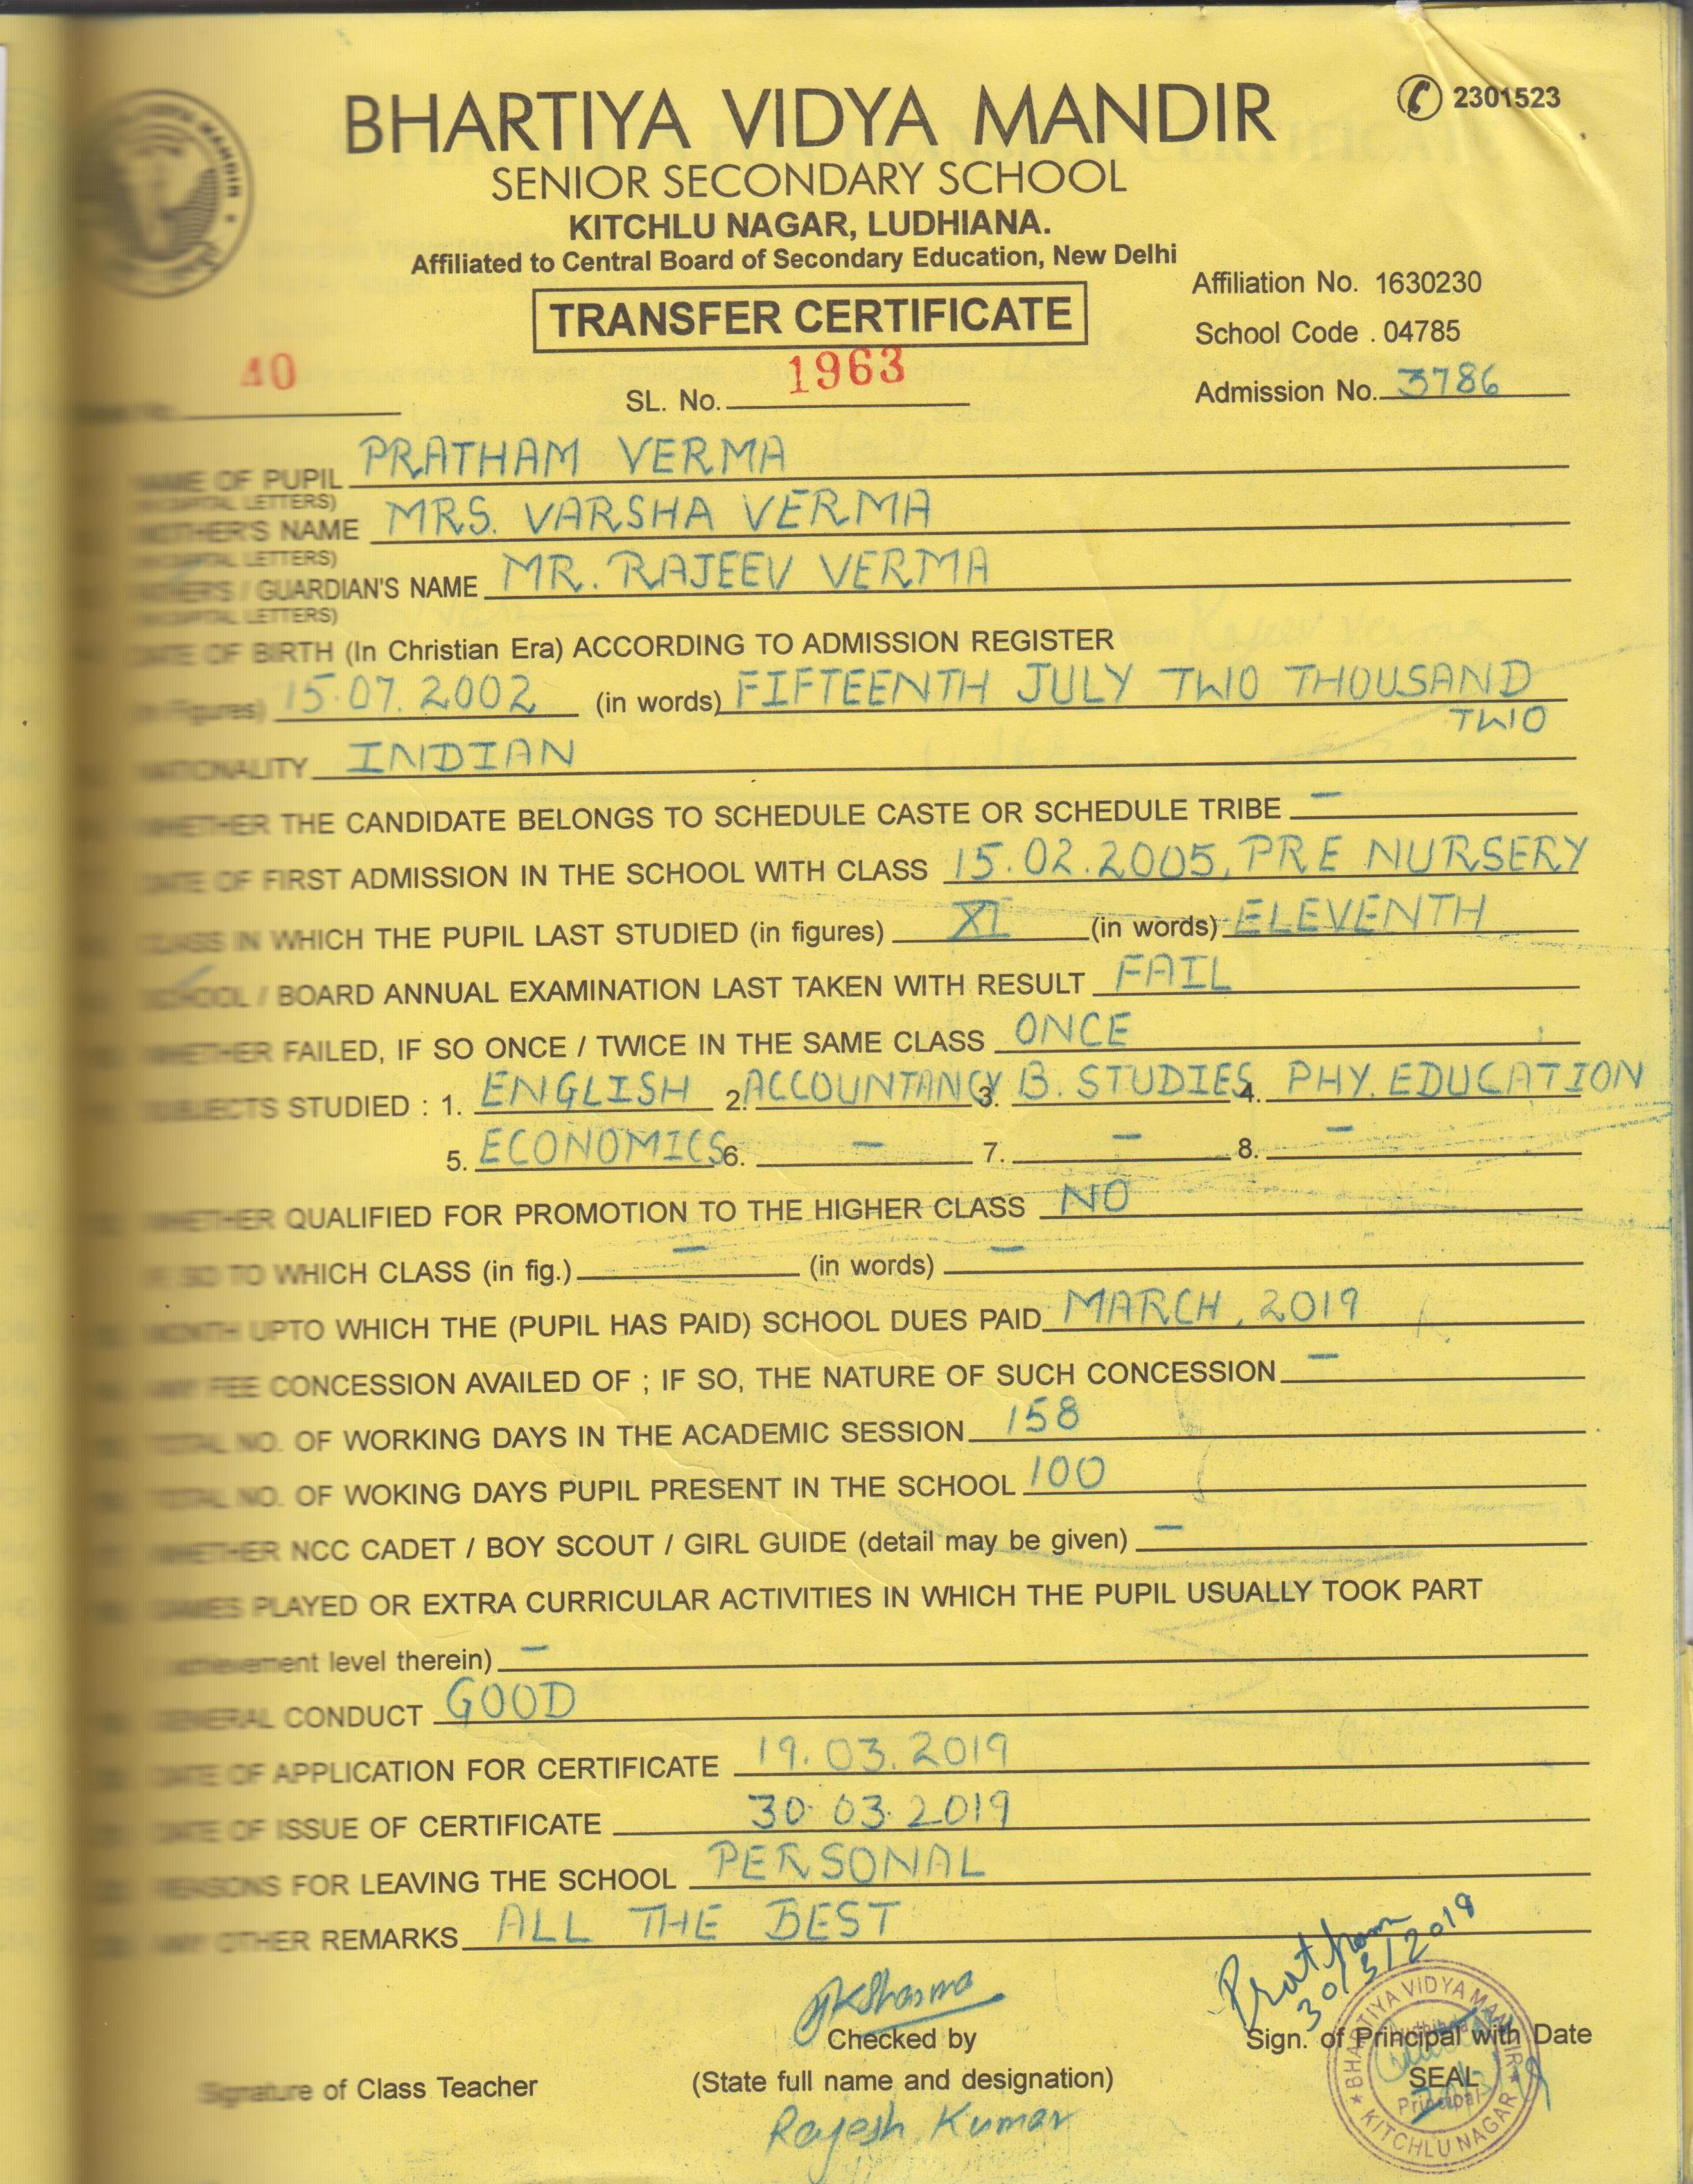 BHARTIYA VIDYA MANDIR
2301523
SENIOR SECONDARY SCHOOL
KITCHLU NAGAR, LUDHIANA.
Affiliated to Central Board of Secondary Education, New Delhi
Affiliation No. 1630230
TRANSFER CERTIFICATE
School Code . 04785
40 SL. No. 1963 Admission No. 3786
NAME OF PUPIL PRATHAM VERMA
(IN CAPITAL LETTERS)
MOTHER'S NAME MRS. VARSHA VERMA
(IN CAPITAL LETTERS)
FATHER'S / GUARDIAN'S NAME MR. RAJEEV VERMA
(IN CAPITAL LETTERS)
DATE OF BIRTH (In Christian Era) ACCORDING TO ADMISSION REGISTER
(in Figures) 15.07.2002 (in words) FIFTEENTH JULY TWO THOUSAND
TWO
NATIONALITY INDIAN
WHETHER THE CANDIDATE BELONGS TO SCHEDULE CASTE OR SCHEDULE TRIBE –
DATE OF FIRST ADMISSION IN THE SCHOOL WITH CLASS 15.02.2005, PRE NURSERY
CLASS IN WHICH THE PUPIL LAST STUDIED (in figures) XI (in words) ELEVENTH
SCHOOL / BOARD ANNUAL EXAMINATION LAST TAKEN WITH RESULT FAIL
WHETHER FAILED, IF SO ONCE / TWICE IN THE SAME CLASS ONCE
SUBJECTS STUDIED : 1. ENGLISH 2. ACCOUNTANCY 3. B. STUDIES 4. PHY. EDUCATION
5. ECONOMICS 6. – 7. – 8. –
WHETHER QUALIFIED FOR PROMOTION TO THE HIGHER CLASS NO
IF SO TO WHICH CLASS (in fig.) – (in words) –
MONTH UPTO WHICH THE (PUPIL HAS PAID) SCHOOL DUES PAID MARCH, 2019
ANY FEE CONCESSION AVAILED OF ; IF SO, THE NATURE OF SUCH CONCESSION –
TOTAL NO. OF WORKING DAYS IN THE ACADEMIC SESSION 158
TOTAL NO. OF WOKING DAYS PUPIL PRESENT IN THE SCHOOL 100
WHETHER NCC CADET / BOY SCOUT / GIRL GUIDE (detail may be given) –
GAMES PLAYED OR EXTRA CURRICULAR ACTIVITIES IN WHICH THE PUPIL USUALLY TOOK PART
achievement level therein) –
GENERAL CONDUCT GOOD
DATE OF APPLICATION FOR CERTIFICATE 19.03.2019
DATE OF ISSUE OF CERTIFICATE 30.03.2019
REASONS FOR LEAVING THE SCHOOL PERSONAL
ANY OTHER REMARKS ALL THE BEST
Pratham
30/3/2019
Checked by
Sign. of Principal with Date
Signature of Class Teacher
(State full name and designation)
SEAL
Rajesh Kumar
BHARTIYA VIDYA MANDIR
Ludhiana
Principal
KITCHLU NAGAR